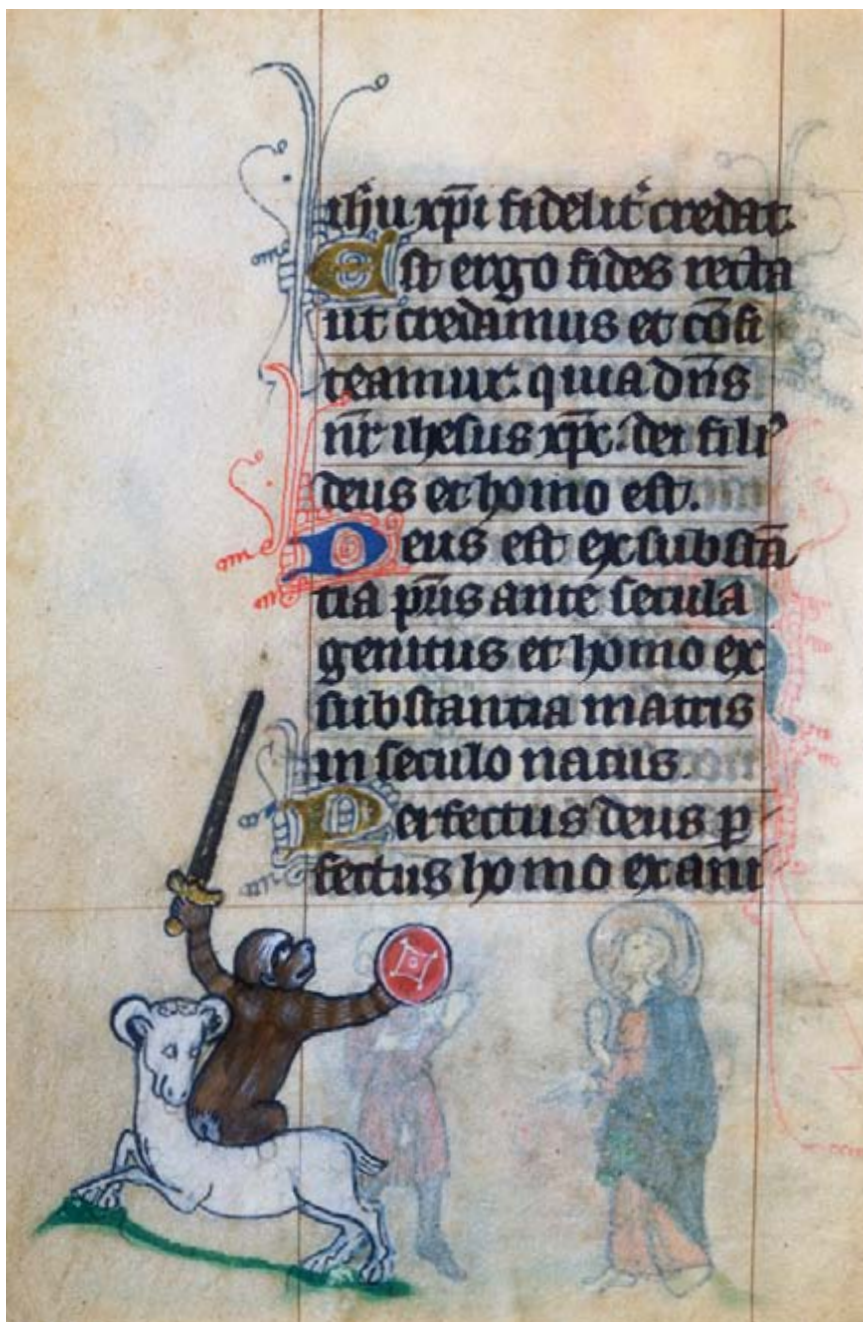 ihu xp̄i fidelit᷑ credat.
Est ergo fides recta
ut credamus et cōfi
teamur. quia dn̄s
nr̄ ihesus xp̄c. dei fili᷒
deus et homo est.
Deus est ex substā
tia pr̄is ante secula
genitus et homo ex
substantia matris
in seculo natus.
Perfectus deus p̄
fectus homo ex ani